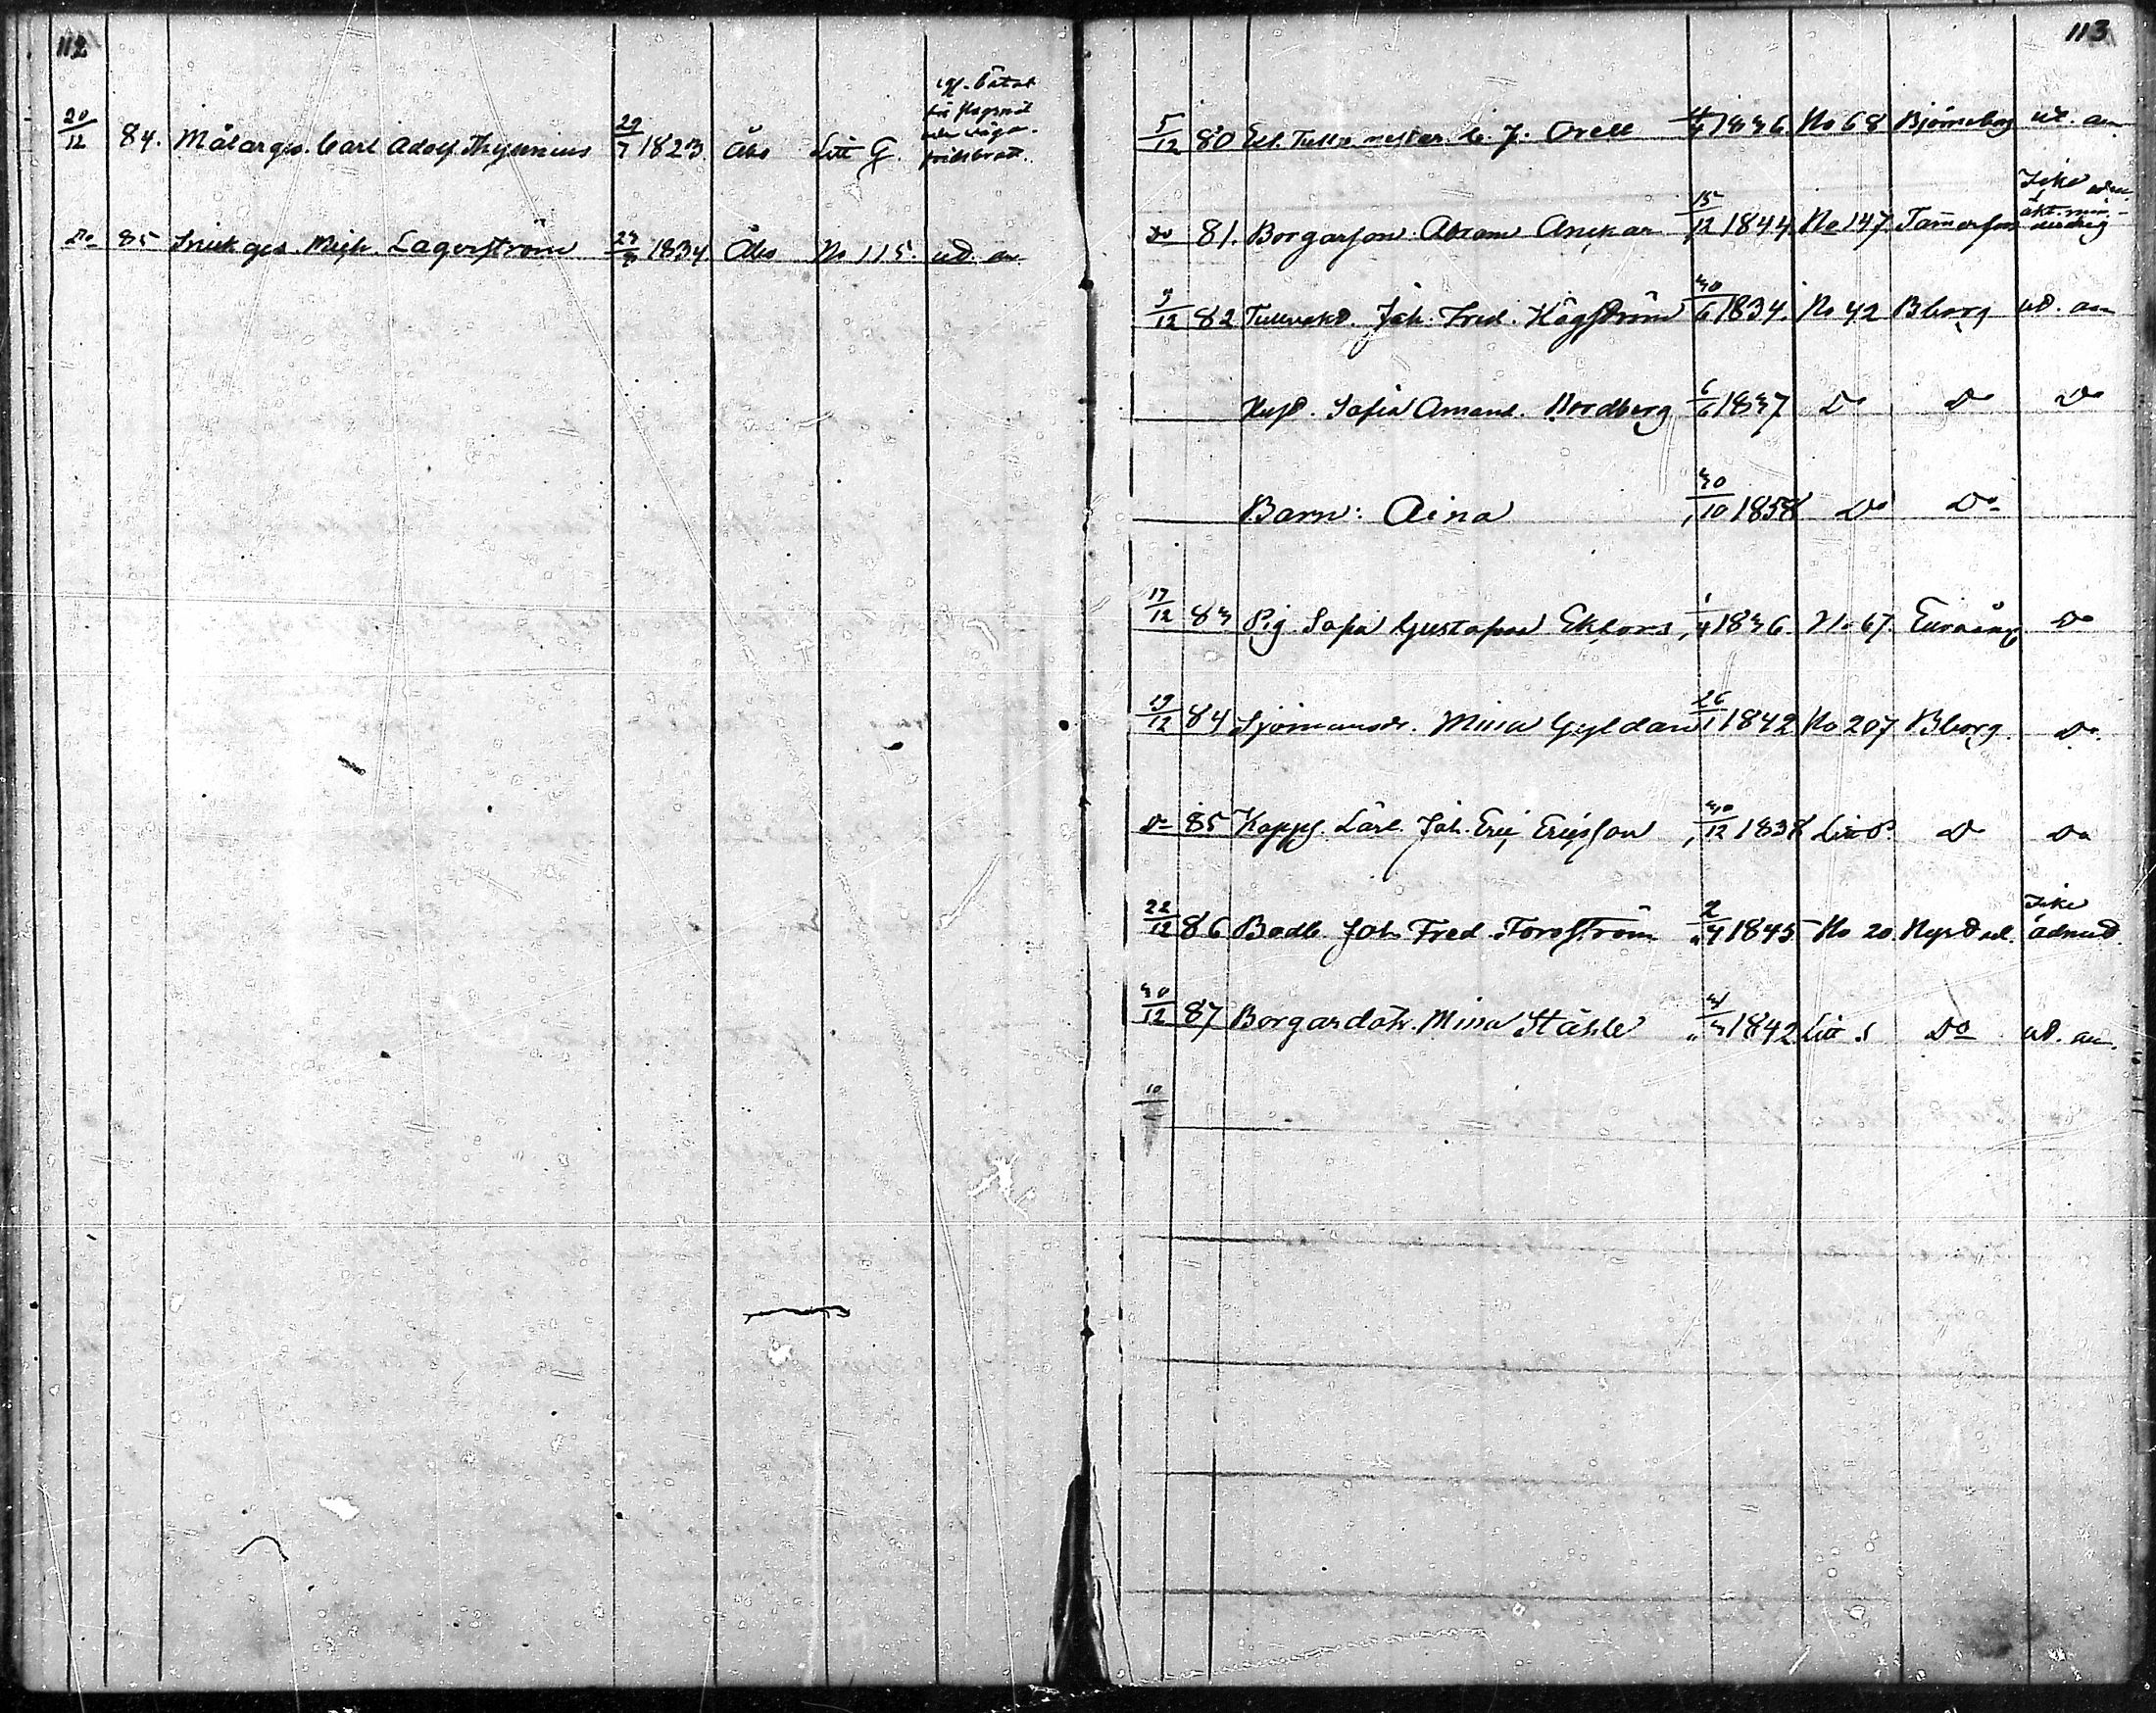 112
20/12 84. Målarges. Carl Adolf Thynnius 29/7 1823. Åbo Litt G.
Do 85 Snickges Mich. Lagerström 1834. Åbo No 115. ud. an
113
5/12 80 C. J. Orell 1836. No 68 Björneborg ud. an
Do 81. Borgarson Abram Anckar 15/12 1844. No 147 Tammerfors Icke
5/12 82 Tullvakt. Joh. Fred. Högström 30/6 1834. No 42 Bborg ud. an
Hust. Sofia Amand. Nordberg 6/6 1837 Do Do Do
Barn: Aina 30/10 1858 Do Do
17/12 83 Pig. Sofia Gustafva Ekfors 1/4 1836. No 67. Euraåm. Do
19/12 84 Sjömansdr. Mina Gyldan 26/1 1842 No 207 Bborg. Do
Do 85 Kopps. Lärl. Joh. Eric Ericsson 30/12 1838 Litt Do Do
22/12 86 Bodb. Joh Fred. Forsström 2/4 1845 No 20. Nystad. Icke admitt.
30/12 87 Borgardotr. Mina Ståhle 1842 Litt S Do ud. an.
10